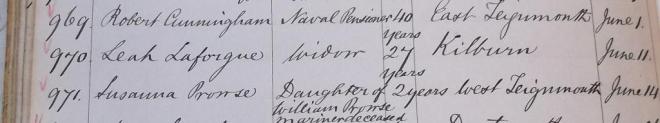 969. Robert Cunningham Naval Pensioner 40 years East Teignmouth June 1.
970. Leah Laforgue Widow 27 years Kilburn June 11.
971. Susanna Prowse Daughter of William Prowse mariner deceased 2 years West Teignmouth June 14